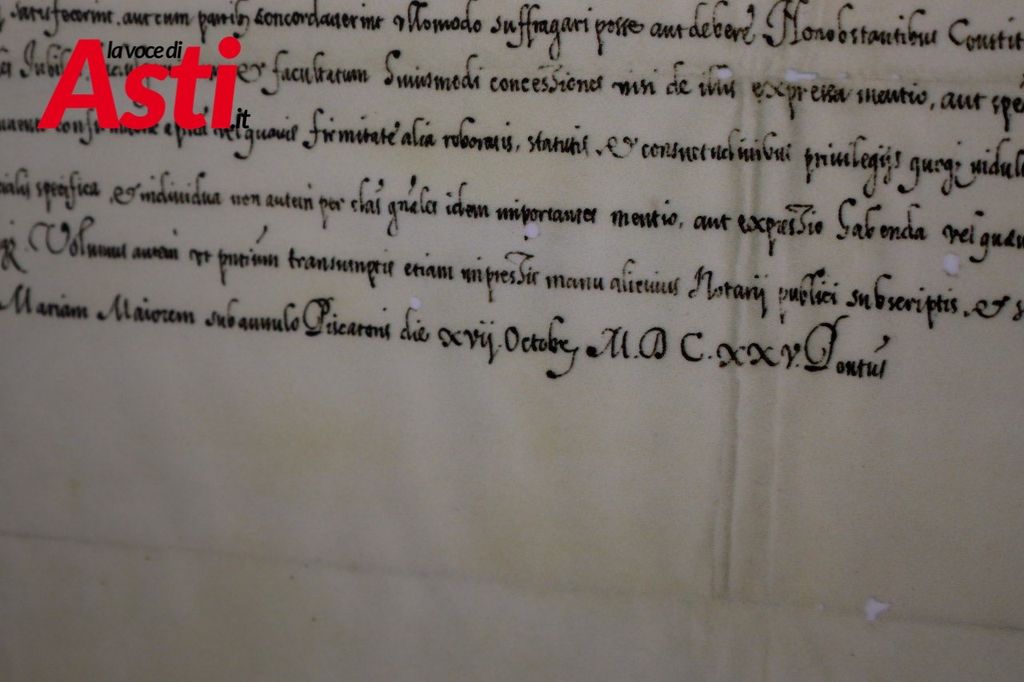 la voce di
Asti
.it
satisfecerint, aut cum partibus concordaverint nullomodo suffragari posse aut debere. Nonobstantibus Constit
facultatum huiusmodi concessiones nisi de illis expressa mentio, aut spe
firmitate alia roboratis, statutis, & consuetudinibus privilegijs quoq; indul
specifica, & individua non autem per clas gnales idem importantes mentio, aut expressio habenda vel quaevi
Volumus autem ut pntium transumptis etiam impressis manu alicuius Notarij publici subscriptis, & s
Mariam Maiorem sub annulo Piscatoris die xvij. Octobr M.D C.xxv. Pontus